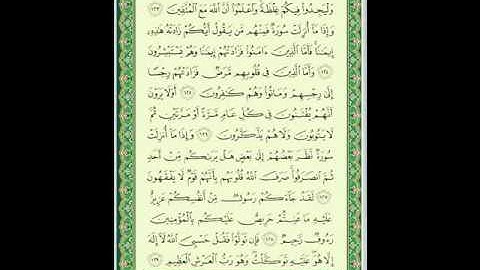 وَلْيَجِدُوا۟ فِيكُمْ غِلْظَةً ۚ وَٱعْلَمُوٓا۟ أَنَّ ٱللَّهَ مَعَ ٱلْمُتَّقِينَ ١٢٣
وَإِذَا مَآ أُنزِلَتْ سُورَةٌ فَمِنْهُم مَّن يَقُولُ أَيُّكُمْ زَادَتْهُ هَٰذِهِۦٓ
إِيمَٰنًا ۚ فَأَمَّا ٱلَّذِينَ ءَامَنُوا۟ فَزَادَتْهُمْ إِيمَٰنًا وَهُمْ يَسْتَبْشِرُونَ
١٢٤ وَأَمَّا ٱلَّذِينَ فِى قُلُوبِهِم مَّرَضٌ فَزَادَتْهُمْ رِجْسًا
إِلَىٰ رِجْسِهِمْ وَمَاتُوا۟ وَهُمْ كَٰفِرُونَ ١٢٥ أَوَلَا يَرَوْنَ
أَنَّهُمْ يُفْتَنُونَ فِى كُلِّ عَامٍ مَّرَّةً أَوْ مَرَّتَيْنِ ثُمَّ
لَا يَتُوبُونَ وَلَا هُمْ يَذَّكَّرُونَ ١٢٦ وَإِذَا مَآ أُنزِلَتْ
سُورَةٌ نَّظَرَ بَعْضُهُمْ إِلَىٰ بَعْضٍ هَلْ يَرَىٰكُم مِّنْ أَحَدٍ
ثُمَّ ٱنصَرَفُوا۟ ۚ صَرَفَ ٱللَّهُ قُلُوبَهُم بِأَنَّهُمْ قَوْمٌ لَّا يَفْقَهُونَ
١٢٧ لَقَدْ جَآءَكُمْ رَسُولٌ مِّنْ أَنفُسِكُمْ عَزِيزٌ
عَلَيْهِ مَا عَنِتُّمْ حَرِيصٌ عَلَيْكُم بِٱلْمُؤْمِنِينَ
رَءُوفٌ رَّحِيمٌ ١٢٨ فَإِن تَوَلَّوْا۟ فَقُلْ حَسْبِىَ ٱللَّهُ لَآ إِلَٰهَ
إِلَّا هُوَ ۖ عَلَيْهِ تَوَكَّلْتُ ۖ وَهُوَ رَبُّ ٱلْعَرْشِ ٱلْعَظِيمِ ١٢٩